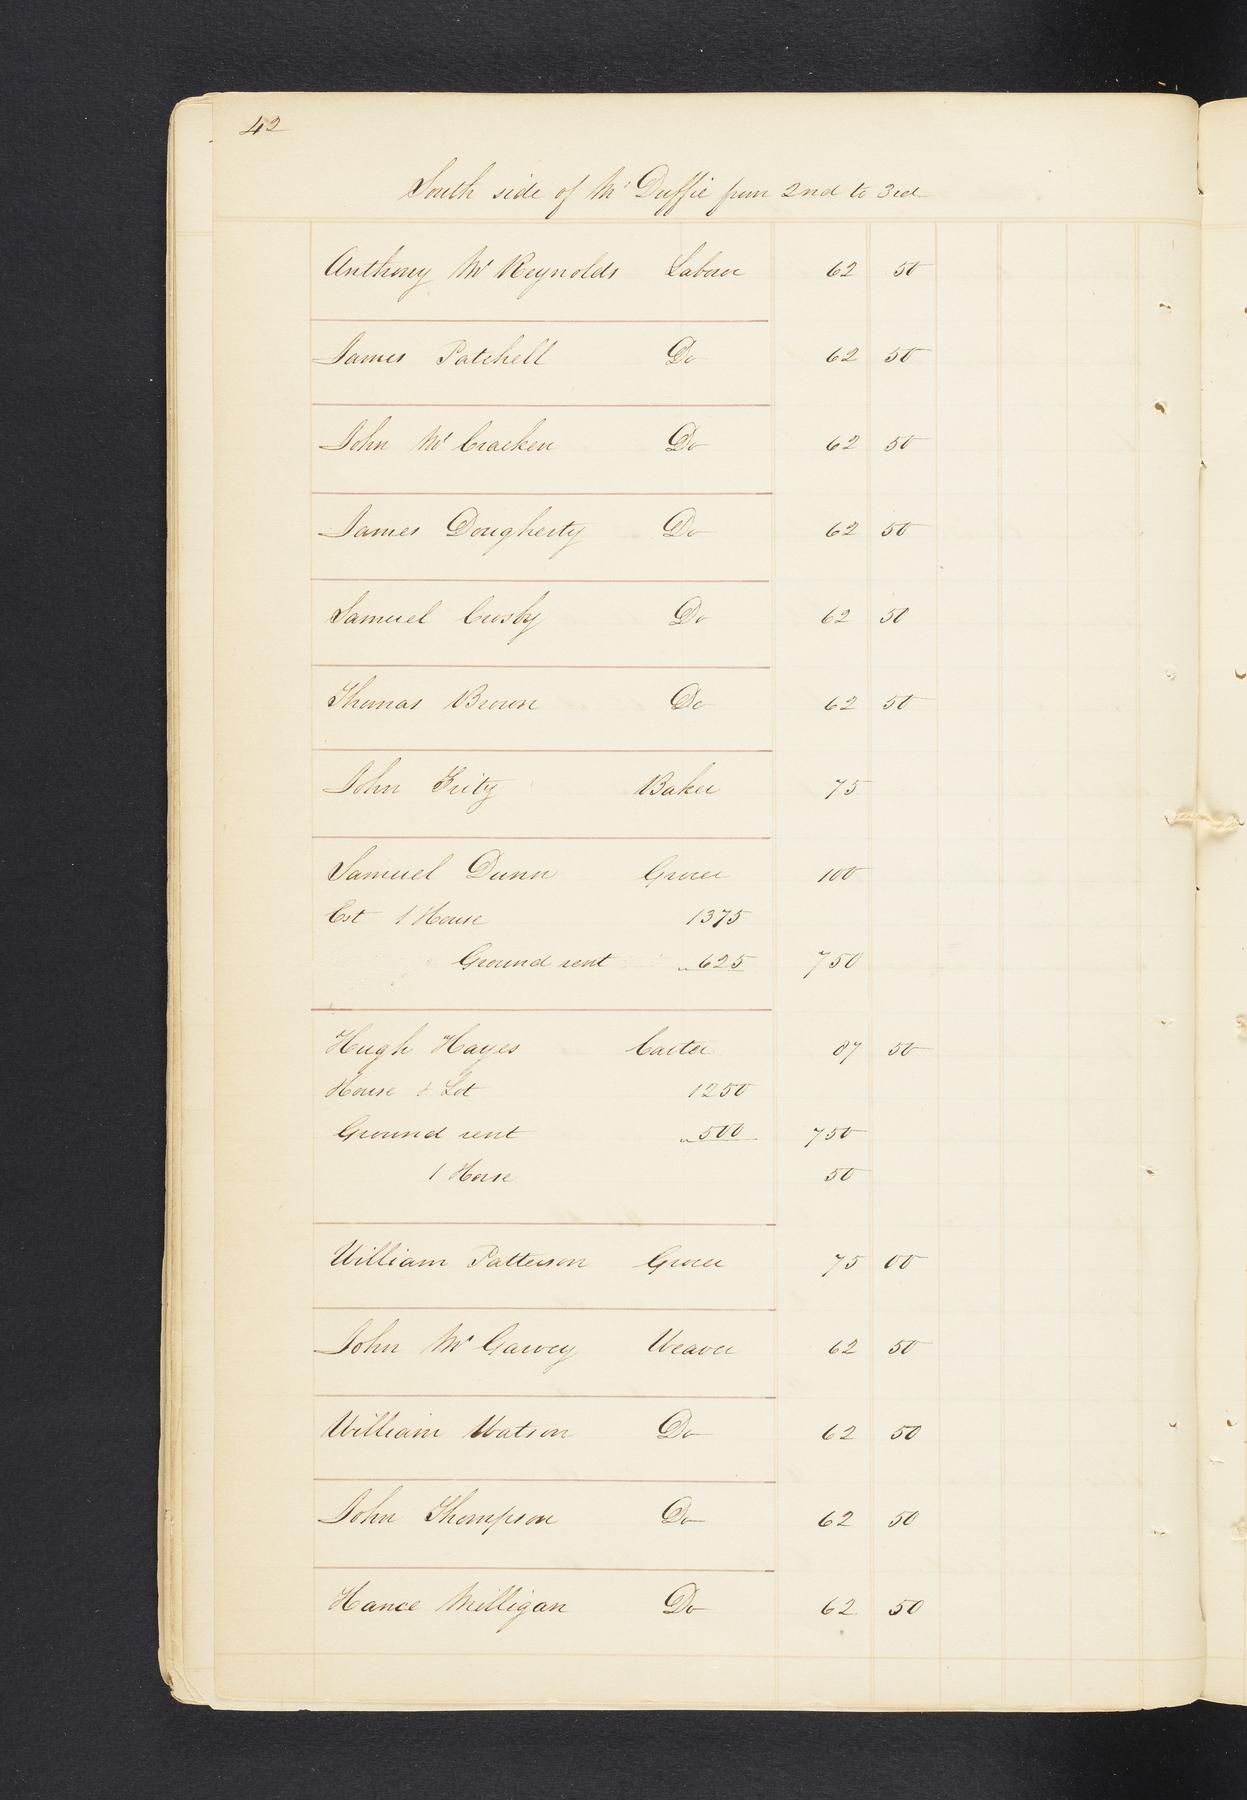 42
South side of Mc Duffie from 2nd to 3rd
Anthony Mc Reynolds Laborer 62 50
James Patchell Do 62 50
John Mc Cracken Do 62 50
James Dougherty Do 62 50
Samuel Crosby Do 62 50
Thomas Brown Do 62 50
John Fritz Baker 75
Samuel Dunn Grocer 100
Est 1 House 1375
Ground rent " 625 750
Hugh Hayes Carter 87 50
House & Lot 1250
Ground rent " 500 750
1 Horse 50
William Patterson Grocer 75 00
John Mc Garvey Weaver 62 50
William Watson Do 62 50
John Thompson Do 62 50
Hance Milligan Do 62 50